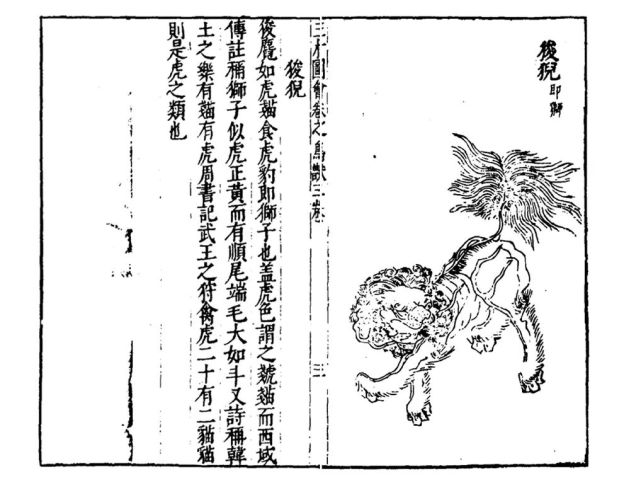 狻猊即獅
三才圖會卷之鳥獸三卷 三
狻猊
狻麑如虎貓食虎豹即獅子也盖虎色謂之虦貓而西域
傳註稱獅子似虎正黃而有順尾端毛大如斗又詩稱韓
土之樂有貓有虎周書記武王之狩禽虎二十有二貓貓
則是虎之類也